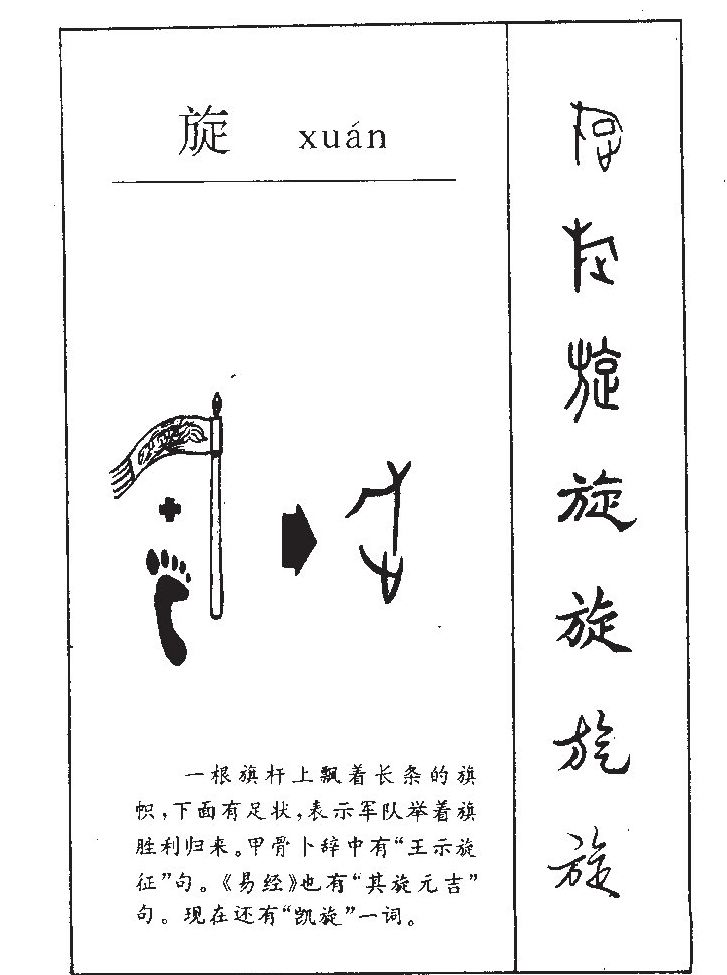 旋 xuán
一根旗杆上飘着长条的旗
帜，下面有足状，表示军队举着旗
胜利归来。甲骨卜辞中有“王示旋
征”句。《易经》也有“其旋元吉”
句。现在还有“凯旋”一词。
旋
旋
旋
旋
旋
旋
旋